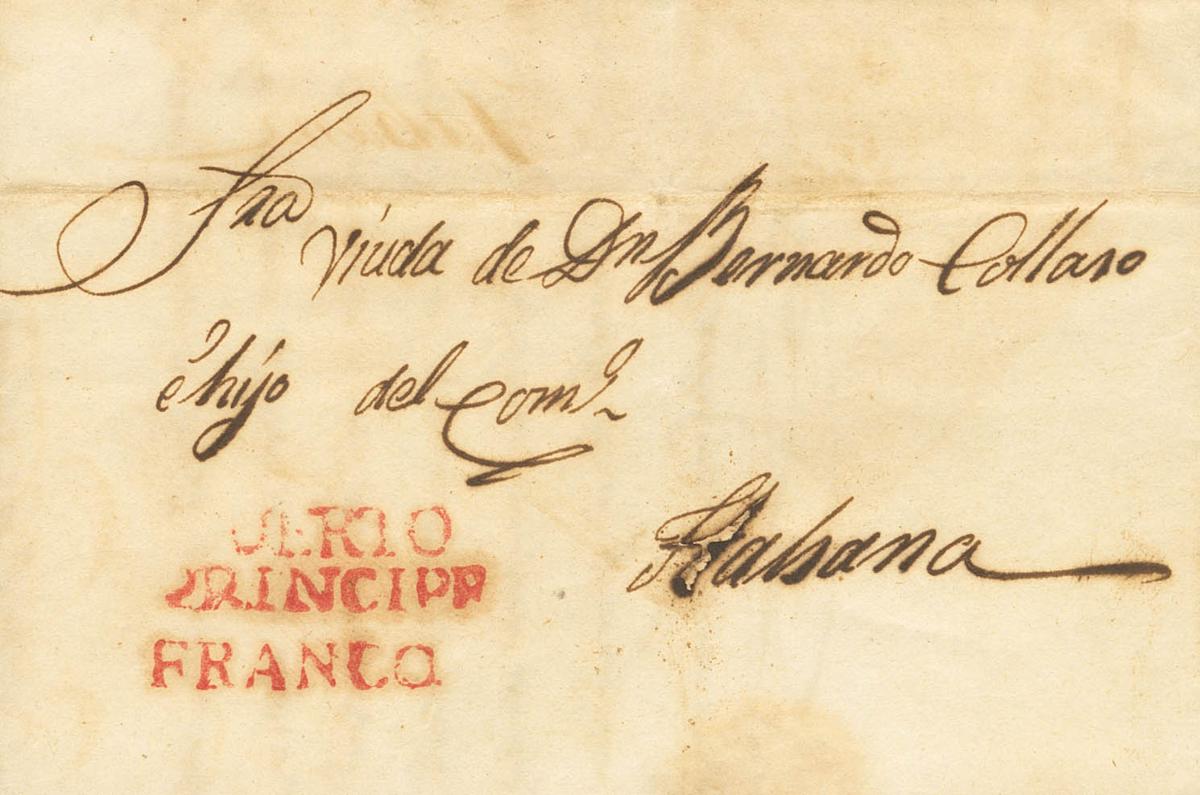 Sra
Viuda de Dn Bernardo Collaso
é hijo del Como
Habana
PUERTO
PRINCIPE
FRANCO